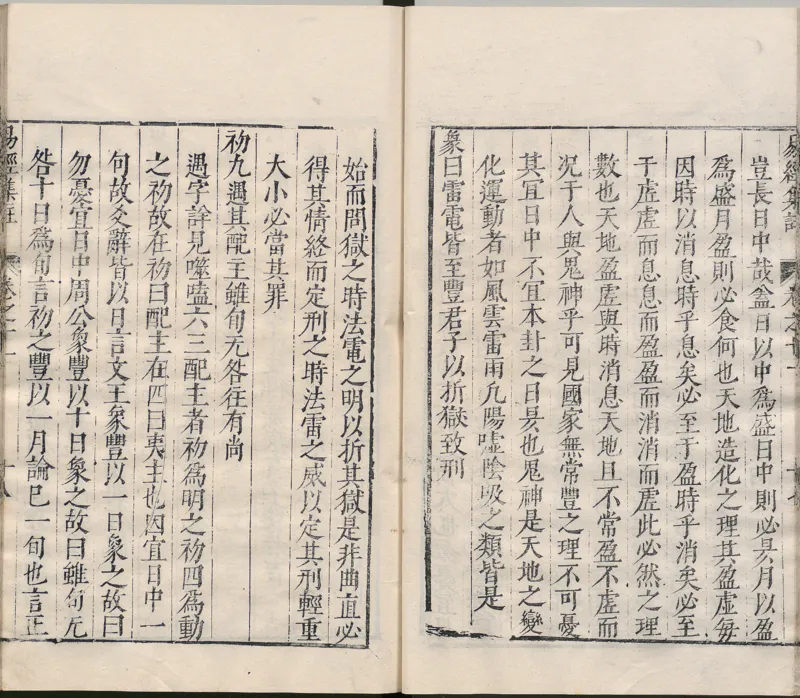 易經集註 卷之十一 十七
豈長日中哉盆日以中為盛日中則必昃月以盈
為盛月盈則必食何也天地造化之理其盈虛每
因時以消息時乎息矣必至于盈時乎消矣必至
于虛虛而息息而盈盈而消消而虛此必然之理
數也天地盈虛與時消息天地且不常盈不虛而
況于人與鬼神乎可見國家無常豐之理不可憂
其宜日中不宜本卦之日昃也鬼神是天地之變
化運動者如風雲雷雨凡陽噓陰吸之類皆是
象曰雷電皆至豐君子以折獄致刑
始而問獄之時法電之明以折其獄是非曲直必
得其情終而定刑之時法雷之威以定其刑輕重
大小必當其罪
初九遇其配主雖旬无咎往有尚
遇字詳見噬嗑六三配主者初為明之初四為動
之初故在初曰配主在四曰夷主也因宜日中一
句故爻辭皆以日言文王象豐以一日象之故曰
勿憂宜日中周公象豐以十日象之故曰雖旬无
咎十日為旬言初之豐以一月論已一旬也言正
易經集註 卷之十一 十八